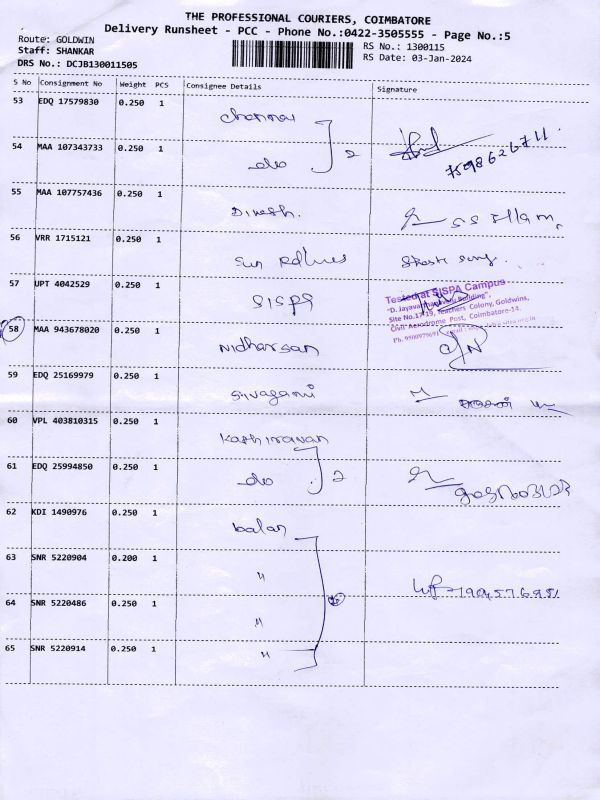 THE PROFESSIONAL COURIERS, COIMBATORE
Delivery Runsheet - PCC - Phone No.:0422-3505555 - Page No.:5
Route: GOLDWIN
Staff: SHANKAR
RS No.: 1300115
DRS No.: DCJB130011505
RS Date: 03-Jan-2024
S No Consignment No Weight PCS Consignee Details Signature
53 EDQ 17579830 0.250 1 Chennai
54 MAA 107343733 0.250 1 do 2 7598626711
55 MAA 107757436 0.250 1 Dinesh.
56 VRR 1715121 0.250 1 Sun
57 UPT 4042529 0.250 1 SISPA
Tested at SISPA Campus
"D. Jayavarthanavelu Building",
Site No.17-19, Teachers Colony, Goldwins,
Civil Aerodrome Post, Coimbatore-14.
58 MAA 943678020 0.250 1 Nidharsan
59 EDQ 25169979 0.250 1 Sivagami
60 VPL 403810315 0.250 1 Kathiravan
61 EDQ 25994850 0.250 1 do 2
62 KDI 1490976 0.250 1 balan
63 SNR 5220904 0.200 1 "
64 SNR 5220486 0.250 1 "
65 SNR 5220914 0.250 1 "